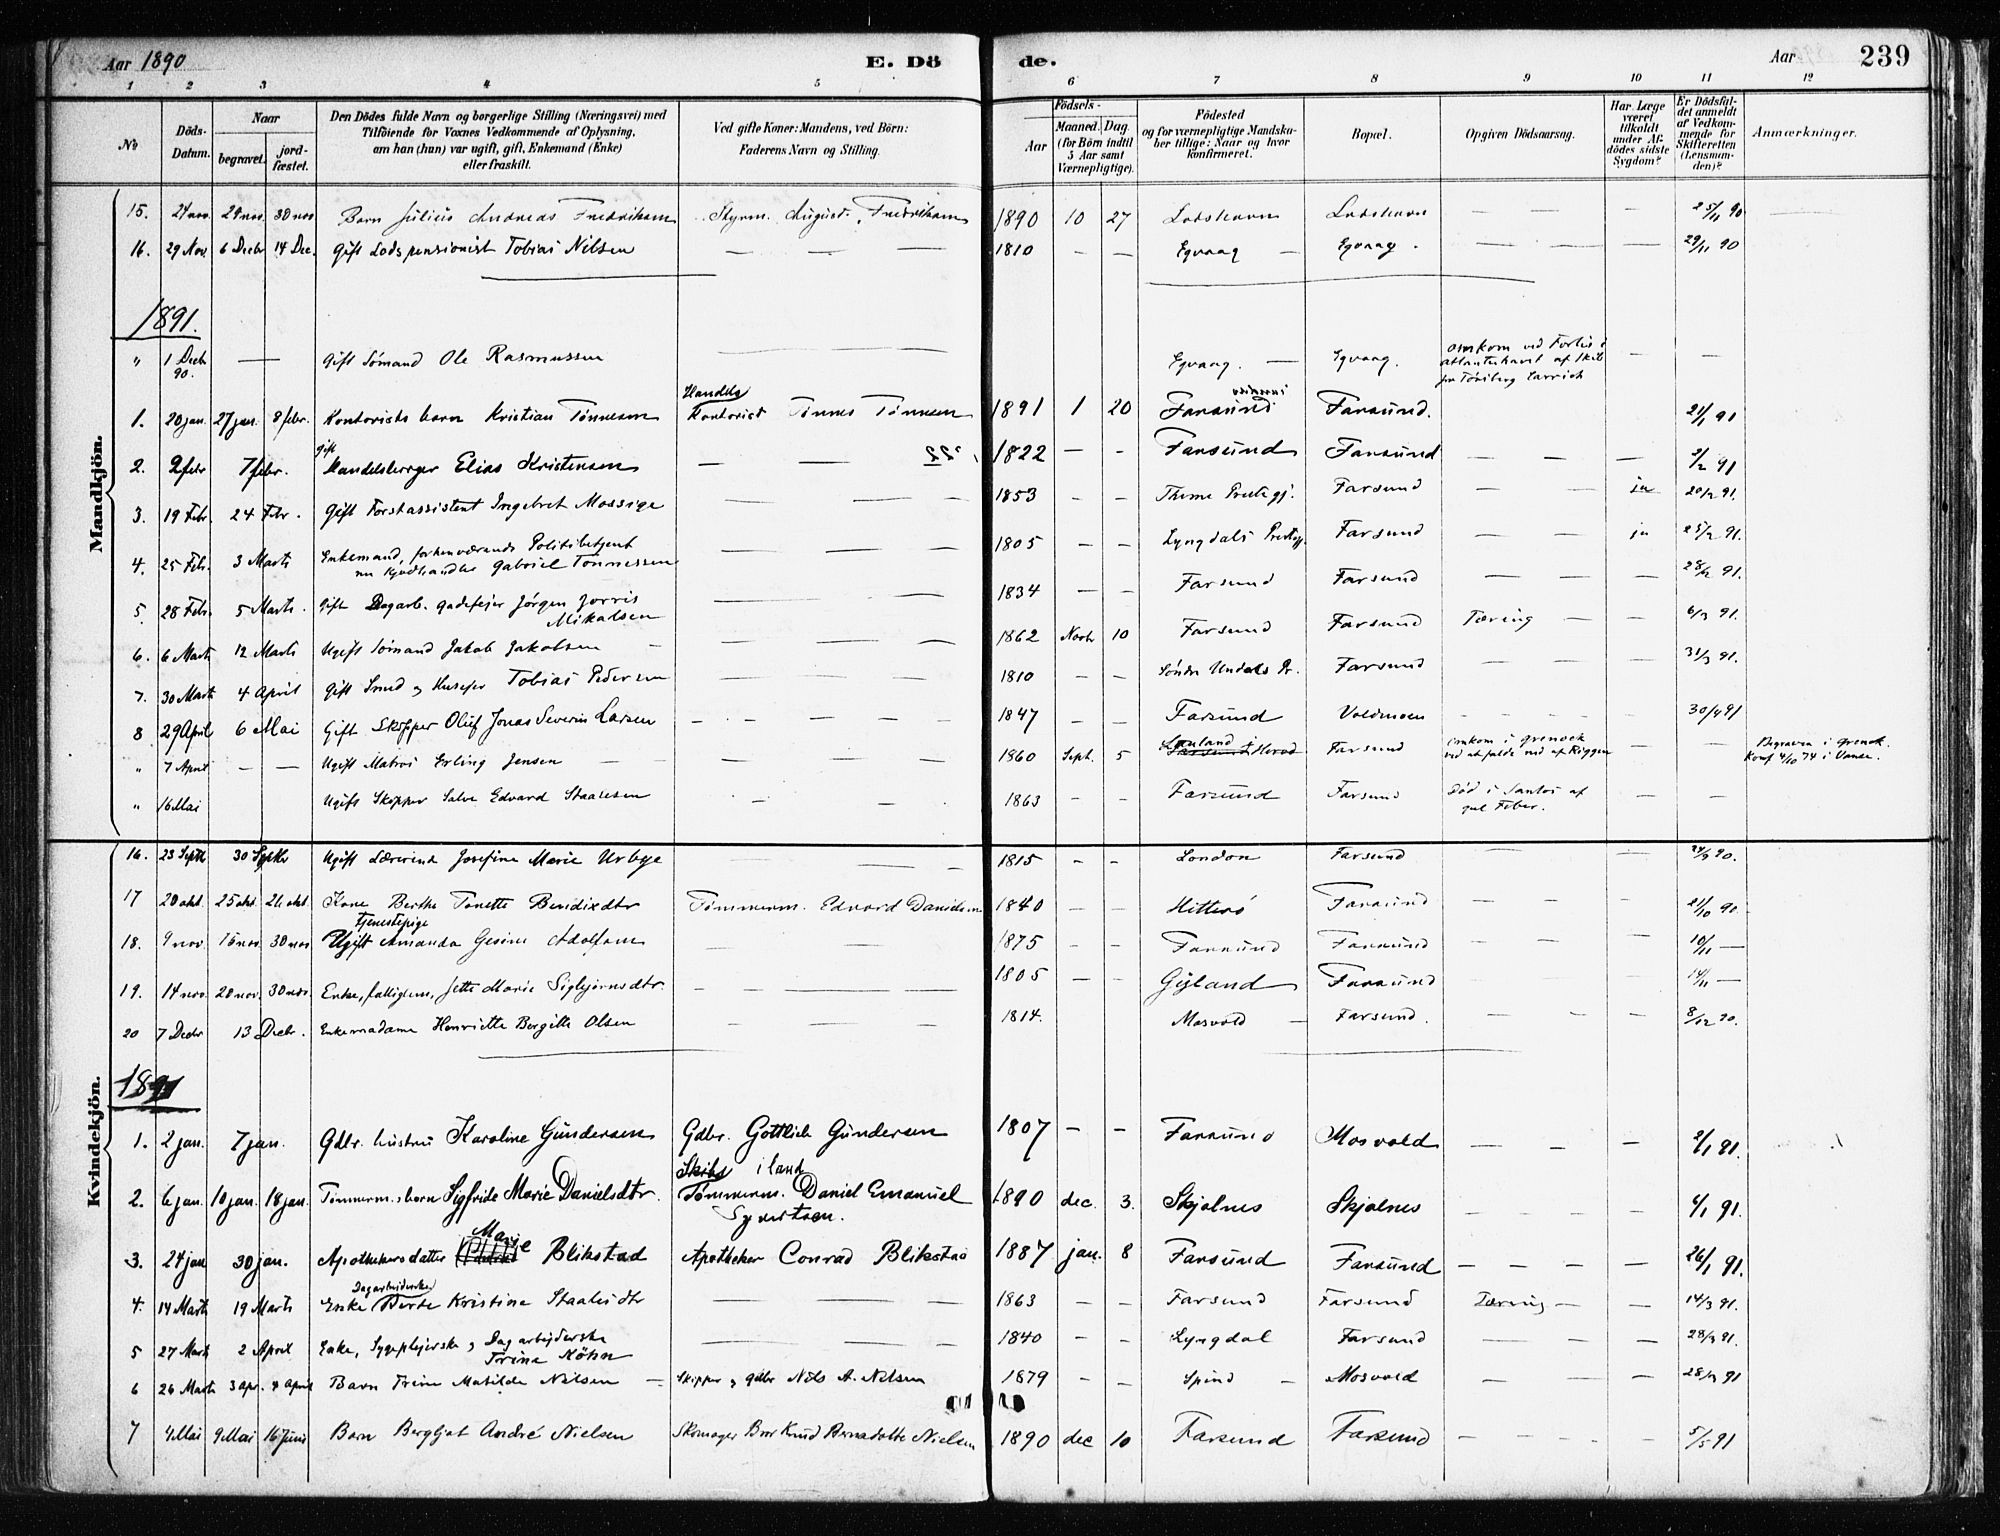 Aar 1890 E. Dö de. Aar 239
1 2 3 4 5 6 7 8 9 10 11 12
No Döds-Datum. Naar begravet. jordfæstet. Den Dödes fulde Navn og borgerlige Stilling (Næringsvei) med Tilföiende for Voxnes Vedkommende af Oplysning, om han (hun) var ugift, gift, Enkemand (Enke) eller fraskilt. Ved gifte Koner: Mandens, ved Börn: Faderens Navn og Stilling. Födsels- Aar Maaned. Dag. (for Börn indtil 5 Aar samt Værnepligtige). Födested og for værnepligtige Mandskaber tillige: Naar og hvor konfirmeret. Bopæl. Opgiven Dödsaarsag. Har Læge været tilkaldt under Afdödes sidste Sygdom? Er Dödsfaldet anmeldt af Vedkommende for Skifteretten (Lensmanden)? Anmærkninger.
Mandkjön.
15. 24 nov. 29 nov. 30 nov Barn Julius Andreas Fredriksen Styrm. August Fredriksen 1890 10 27 Lodshavn Lodshavn — — — 25/11 90
16. 29 Nov. 6 Decbr 14 Dec. Gift Lodspensionist Tobias Nilsen — — — 1810 — — Egvaag — Egvaag. — — — 29/11 90
1891.
" 1 Decb 90. — Gift Sømand Ole Rasmussen — — — Egvaag. — Egvaag. omkom ved Forlis i Atlanterhavet af Skib fra Tønsberg — —
1. 20 jan. 27 jan. 8 febr. Kontorists barn Kristian Tønnesen Handels Kontorist Tønnes Tønnesen 1891 1 20 Farsund Farsund. 21/1 91
2. 2 febr 7 febr. gift Handelsborger Elias Kristensen — — 1822 — — Farsund Farsund — — — 3/2 91
3. 19 Febr. 24 Febr. Gift Forstassistent Ingebret Mossige — — — 1853 — — Thime Prestegj. Farsund — — ja 20/2 91.
4. 25 Feb. 3 Marts Enkemand, forhenværende Politibetjent nu Kjødhandler Gabriel Tønnessen — — — 1805 — — Lyngdals Prestegj. Farsund — — ja 25/2 91.
5. 28 Febr. 5 Marts. Gift Dagarb. gadefejer Jørgen Jorris Mikalsen — — — 1834 — — Farsund Farsund — — — 28/2 91.
6. 6 Marts 12 Marts Ugift Sømand Jakob Jakobsen — — — 1862 Novb 10 Farsund Farsund Tæring — — 6/3 91.
7. 30 Marts 4 April Gift Smed og Husejer Tobias Pedersen — — — 1810 — — Søndre Undals Pr. Farsund — — — 31/3 91.
8 29 April 6 Mai Gift Skipper Oluf Jonas Severin Larsen — — — 1847 — — Farsund Voldmoen — — — 30/4 91
" 7 April — — Ugift Matros Erling Jensen — — — 1860 Sept. 5 i Herad Farsund omkom i Grenock ved at falde ned af Riggen — — Begraven i Grenok. Konf 4/10 74 i Vanse.
" 16 Mai Ugift Skipper Salve Edvard Staalesen — — 1863 — — Farsund Farsund Død i Santos af gul Feber. — —
Kvindekjön.
16. 23 Septbr 30 Septbr Ugift Lærerinde Josefine Marie Urbye — — 1815 — — London Farsund — — 24/9 90.
17 20 okt. 25 okt. 26 okt Kone Berthe Tonette Bendixdtr Tømmerm. Edvard Danielsen 1840 — — Hitterø Farsund — — — 21/10 90.
18. 9 nov. 15 nov. 30 nov tjenestepige Ugift Amanda Gesine Adolfsen — — 1875 — — Farsund Farsund — — — 10/11 —
19. 14 nov. 20 nov. 30 nov. Enke, fattiglem, Jette Marie Sigbjørnsdtr. — — — 1805 — — Gyland Farsund — — — 14/11 —
20 7 Decbr 13 Decbr. Enkemadame Henriette Bergitte Olsen — — — 1814. Mosvold — Farsund. — — — 8/12 90.
1891
1. 2 jan. 7 jan. Gdbr. hustru Karoline Gundersen Gdbr. Gottlieb Gundersen 1807 — — Farsund Mosvold — — — 2/1 91.
2. 6 jan. 10 jan. 18 jan. Tømmerm.s barn Sigfride Marie Danielsdtr. Skibs i land Tømmerm. Daniel Emanuel Syvertsen. 1890 dec. 3. Skjolnes Skjolnes 6/1 91.
3. 24 jan 30 jan. Apothekersdatter Marie Blikstad Apotheker Conrad Blikstad 1887 jan. 8 Farsund Farsund — — — — 26/1 91.
4. 14 Marts 19 Marts Enke Dagarbeiderske Berte Kristine Staalesdtr — — — 1863 — — Farsund Farsund Tæring — — 14/3 91.
5 27 Marts 2 April Enke, Sygeplejerske og Dagarbejderske Trine Köhn — — — 1840 — — Lyngdal Farsund — — — 28/3 91.
6 26 Marts 3 Apr. 4 April Barn Trine Matilde Nilsen — Skipper og Gdbr Nils A. Nilsen 1879 — — Spind — Mosvold — — — 28/3 91
7 4 Mai 9 Mai 16 Juni Barn Bergljot André Nielsen Skomager Knud Bernadotte Nielsen 1890 dec 10 Farsund Farsund — — — — 5/5 91